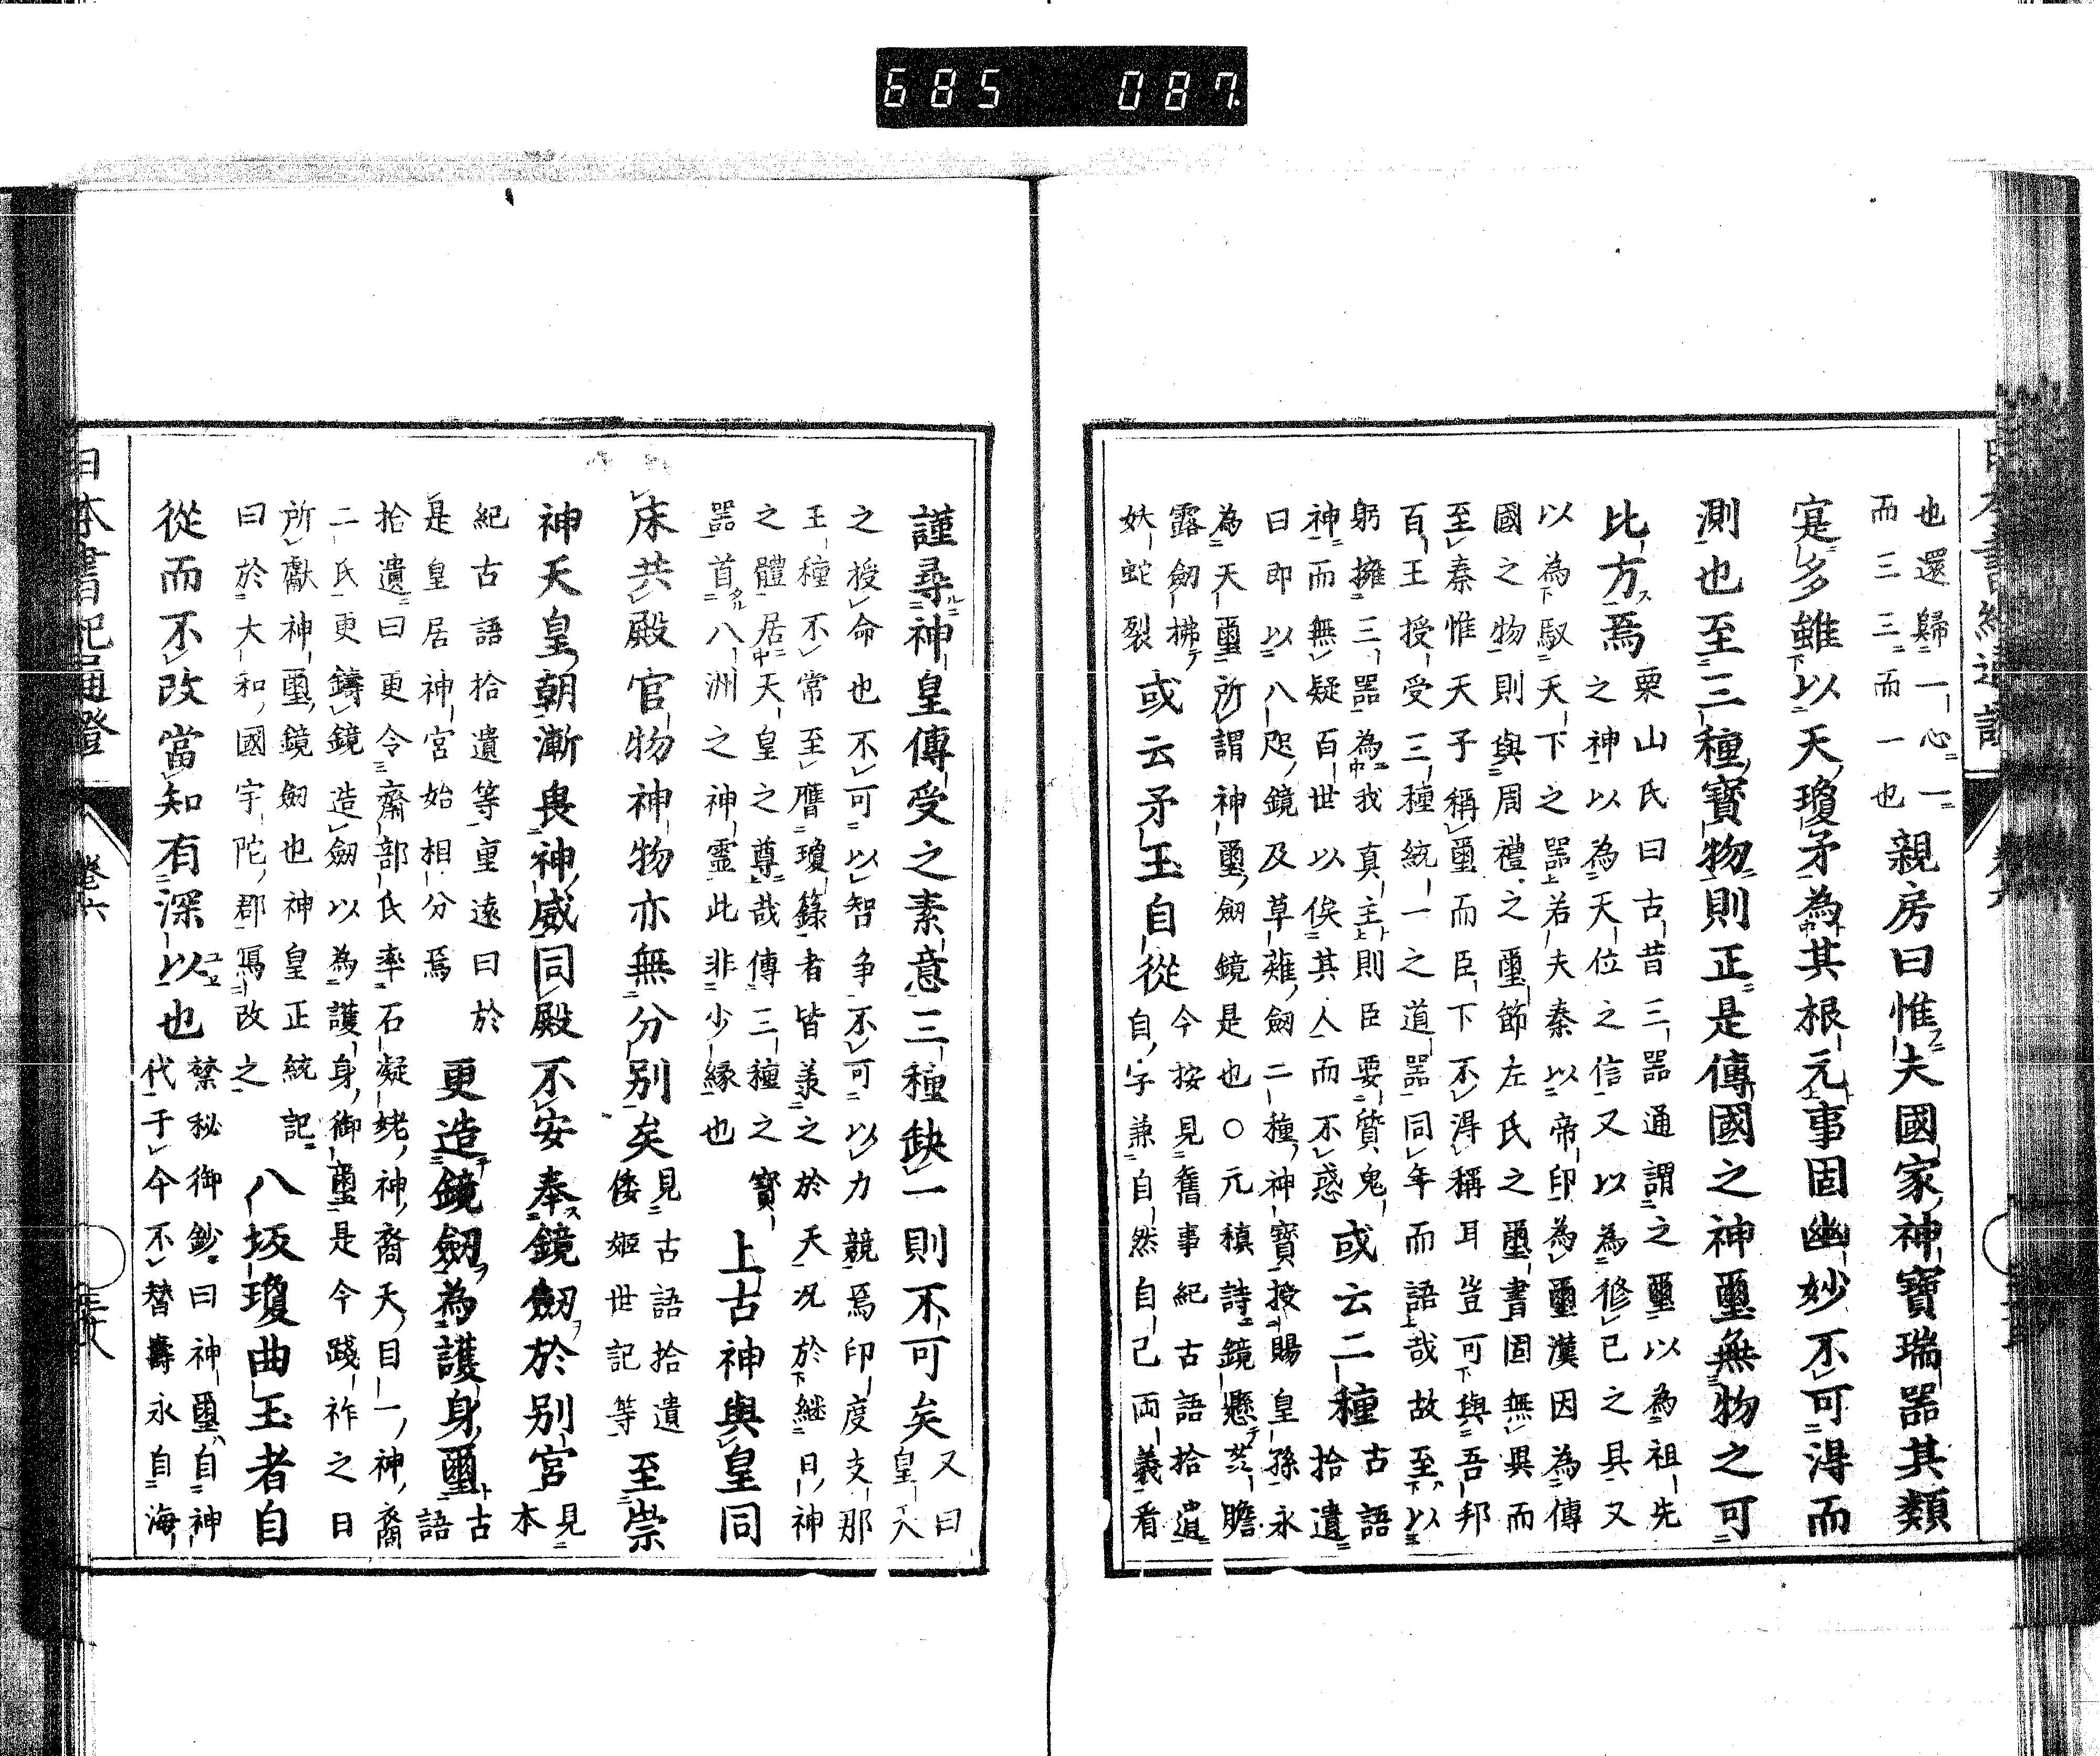 685 087
也還歸一心一
而三三而一也
親房曰惟夫國家神寶瑞器其類
寔多雖以天瓊矛為其根元事固幽妙不可得而
測也至三種寶物則正是傳國之神璽無物之可
比方焉
栗山氏曰古昔三器通謂之璽以為祖先
之神以為天位之信又以為修己之具又
以為馭天下之器若夫秦以帝印為璽漢因為傳
國之物則與周禮之璽節左氏之璽書固無異而
至秦惟天子稱璽而臣下不得稱耳豈可與吾邦
百王授受三種統一之道器同年而語哉故至以
躬擁三器為我真主則臣要質鬼
神而無疑百世以俟其人而不惑
或云二種
古語
拾遺
曰即以八咫鏡及草薙劒二種神寶授賜皇孫永
為天璽所謂神璽劒鏡是也○元稹詩鏡懸瞻
露劒拂
妖蛇裂
或云矛玉自從
今按見舊事紀古語拾遺
自字兼自然自己兩義看
謹尋神皇傳受之素意三種缺一則不可矣
又曰
皇人
之授命也不可以智争不可以力競焉印度支那
王種不常至膺瓊籙者皆羨之於天况於継日神
之體居天皇之尊哉傳三種之寶
器首八洲之神靈此非少縁也
上古神與皇同
床共殿官物神物亦無分別矣
見古語拾遺
倭姬世記等
至崇
神天皇朝漸畏神威同殿不安奉鏡劒於別宮
見
本
紀古語拾遺等重遠曰於
是皇居神宮始相分焉
更造鏡劒為護身璽
古
語
拾遺曰更令齋部氏率石凝姥神裔天目一神裔
二氏更鑄鏡造劒以為護身御璽是今踐祚之日
所獻神璽鏡劒也神皇正統記
曰於大和國宇陀郡寫改之
八坂瓊曲玉者自
從而不改當知有深以也
禁秘御鈔曰神璽自神
代于今不替壽永自海
日本書紀通證 卷六